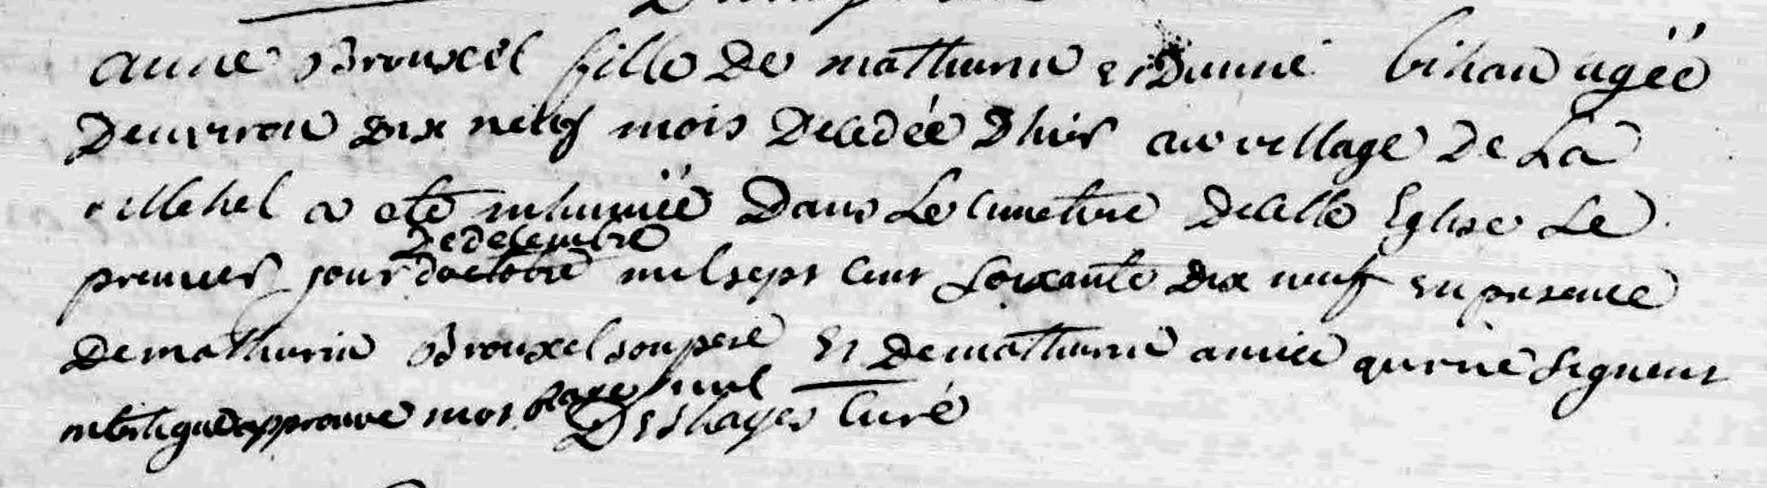 anne Brouxel fille De mathurin et Danne bihan agéé
Denviron Dix neuf mois Decedéé Dhier au village De La
villehel a eté inhuméé Dans Le cimetire Decelle Eglise Le
De decembre
premier jour doctobre mil sept cent Soixante Dix neuf en presence
De mathurin Brouxel son pere Et De mathurin amice qui ne Signent
interligne approuve mot Rayé nul
Deshayes Curé